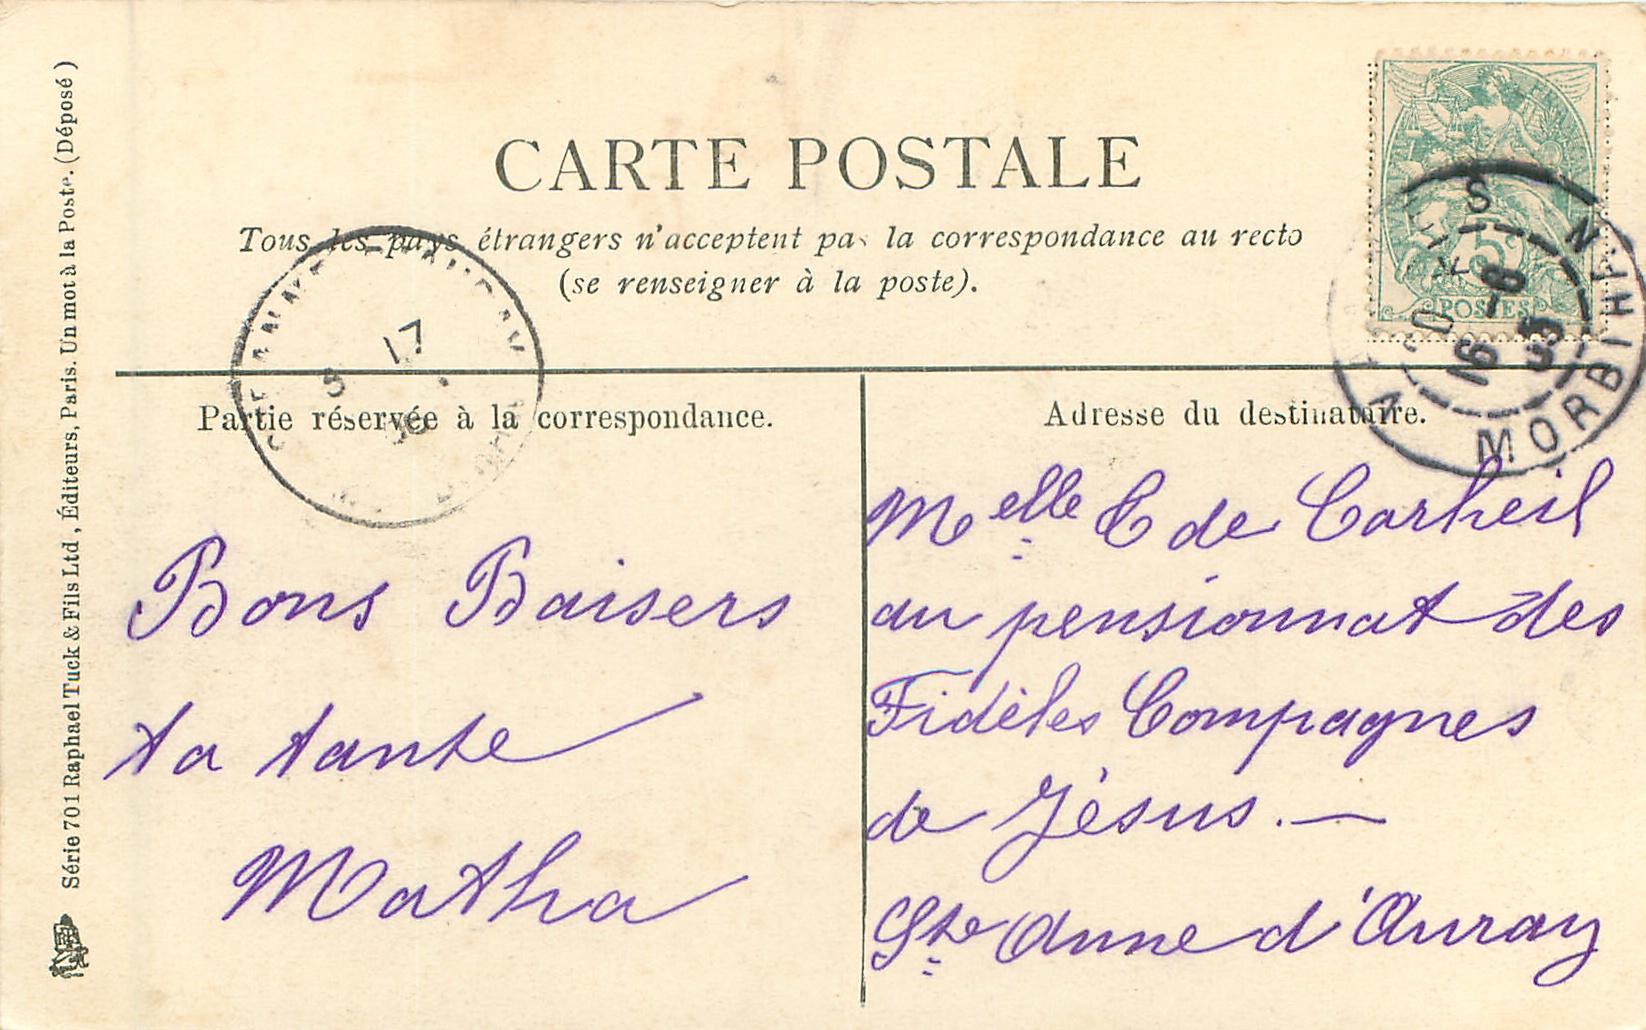 CARTE POSTALE
Tous les pays étrangers n'acceptent pas la correspondance au recto
(se renseigner à la poste).
Partie réservée à la correspondance.
Bons Baisers
ta tante
Matha
Adresse du destinataire.
Melle C de Carheil
au pensionnat des
Fidèles Compagnes
de Jésus. —
Ste Anne d'Auray
Série 701 Raphael Tuck & Fils Ltd, Éditeurs, Paris. Un mot à la Poste. (Déposé)
5
POSTES
MORBIHAN
17